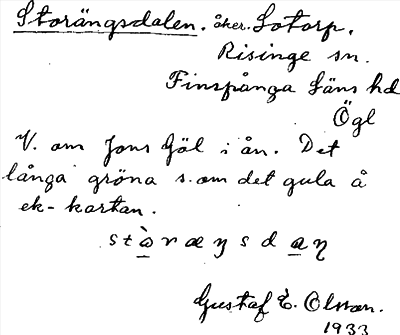 Storängsdalen. åker. Lotorp.
Risinge sn.
Finspånga läns hd
Ögl
V. om Jons Göl i ån. Det
långa gröna s. om det gula å
ek-kartan.
stòræŋsdaŋ
Gustaf E. Olsson.
1933